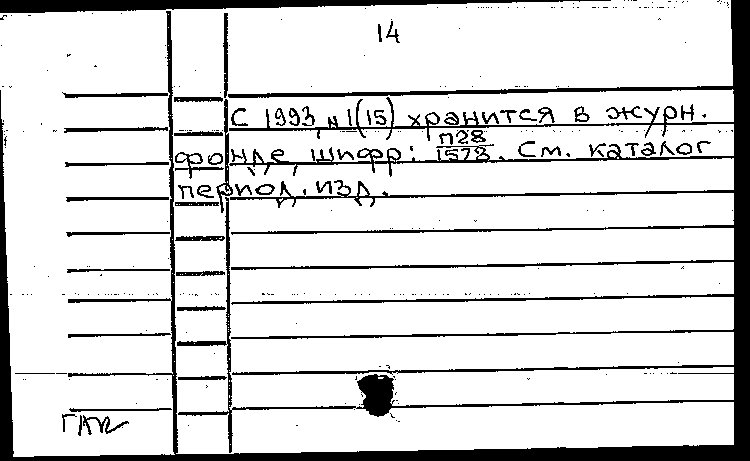 14
С 1993, N 1(15) хранится в журн.
фонде, шифр: П28/1578. См. каталог
период. изд.